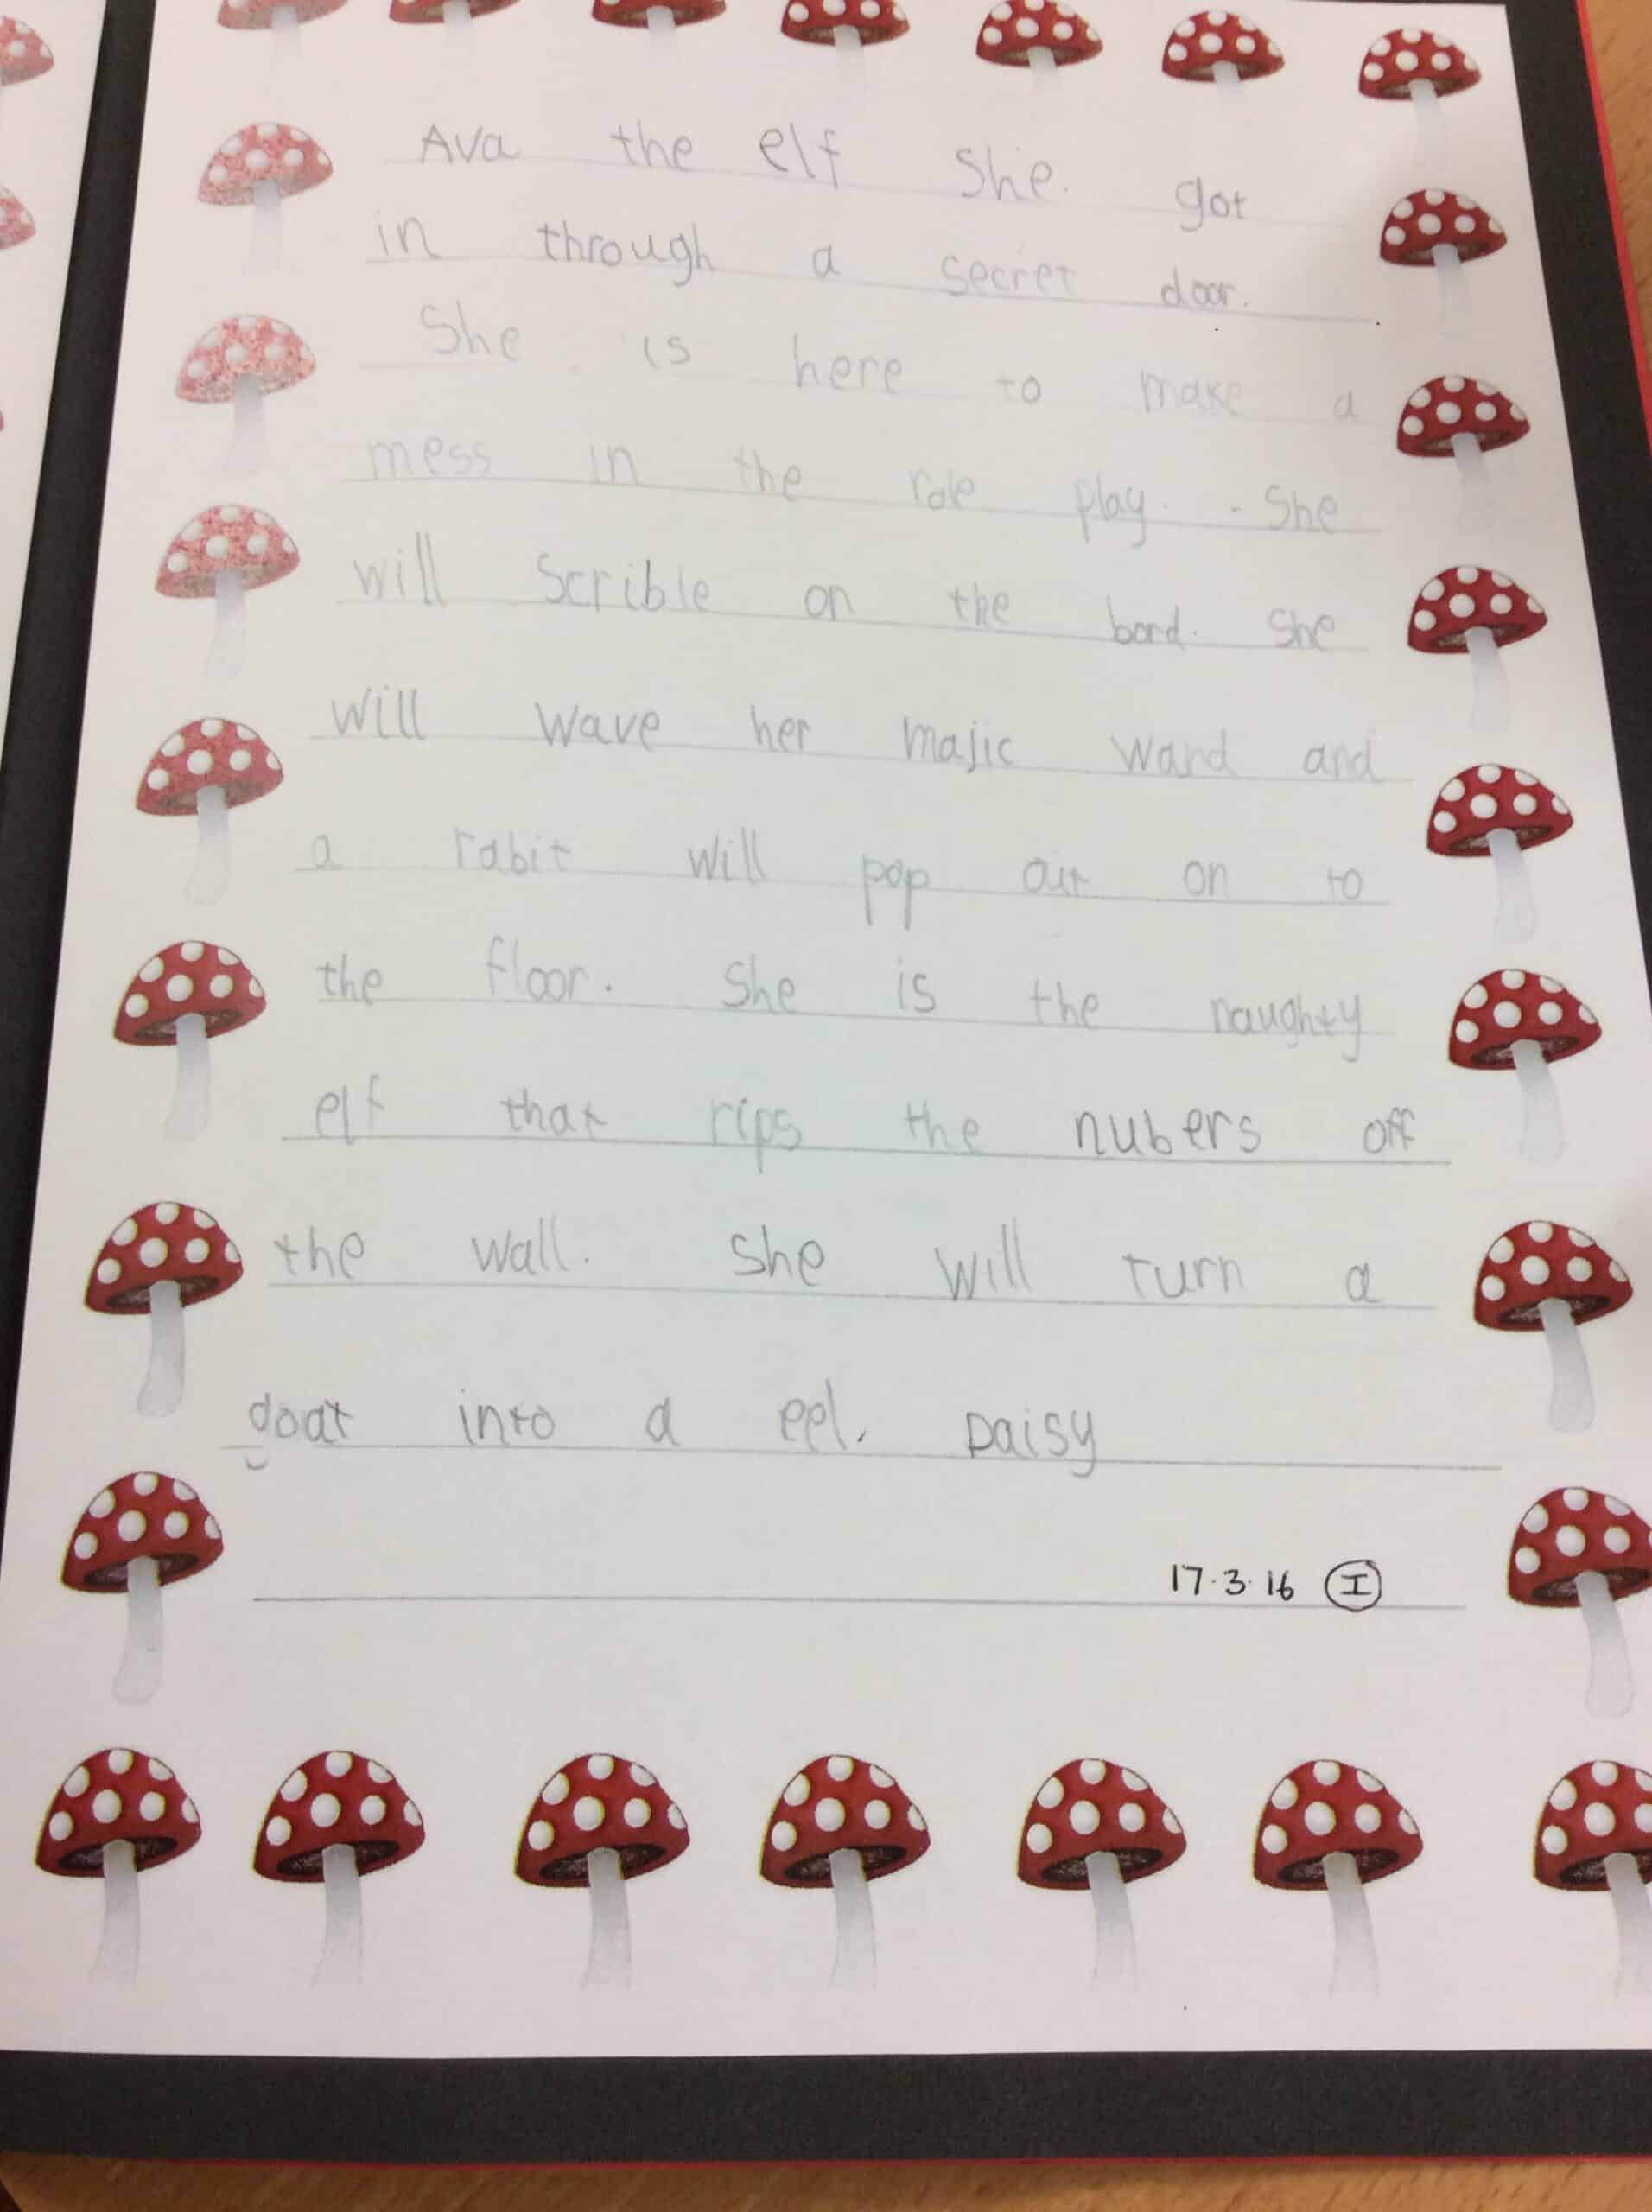 Ava the elf She. got
in through a secret door.
She is here to make a
mess in the role play. She
will scrible on the bord. She
will wave her majic wand and
a rabit will pop out on to
the floor. She is the naughty
elf that rips the nubers off
the wall. She will turn a
goat into a eel. Daisy
17.3.16 I